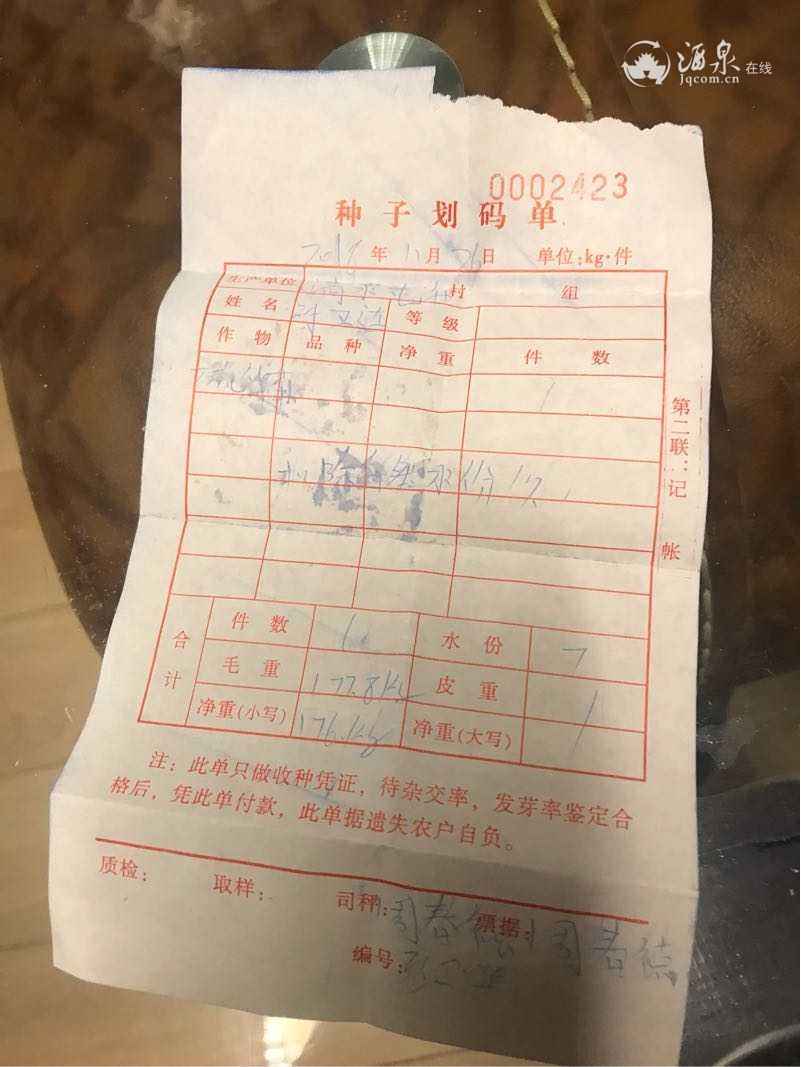 酒泉在线
Jqcom.cn
0002423
种子划码单
年 11 月 26 日 单位:kg·件
生产单位 村 组
姓名 等级
作物 品种 净重 件数
1
扣除 水份
第二联:记帐
合计 件数 1 水份 7
毛重 177.8kg 皮重 1
净重(小写) 176.1kg 净重(大写)
注:此单只做收种凭证,待杂交率,发芽率鉴定合
格后,凭此单付款,此单据遗失农户自负。
质检: 取样: 司秤:周春德 票据:周春德
编号: